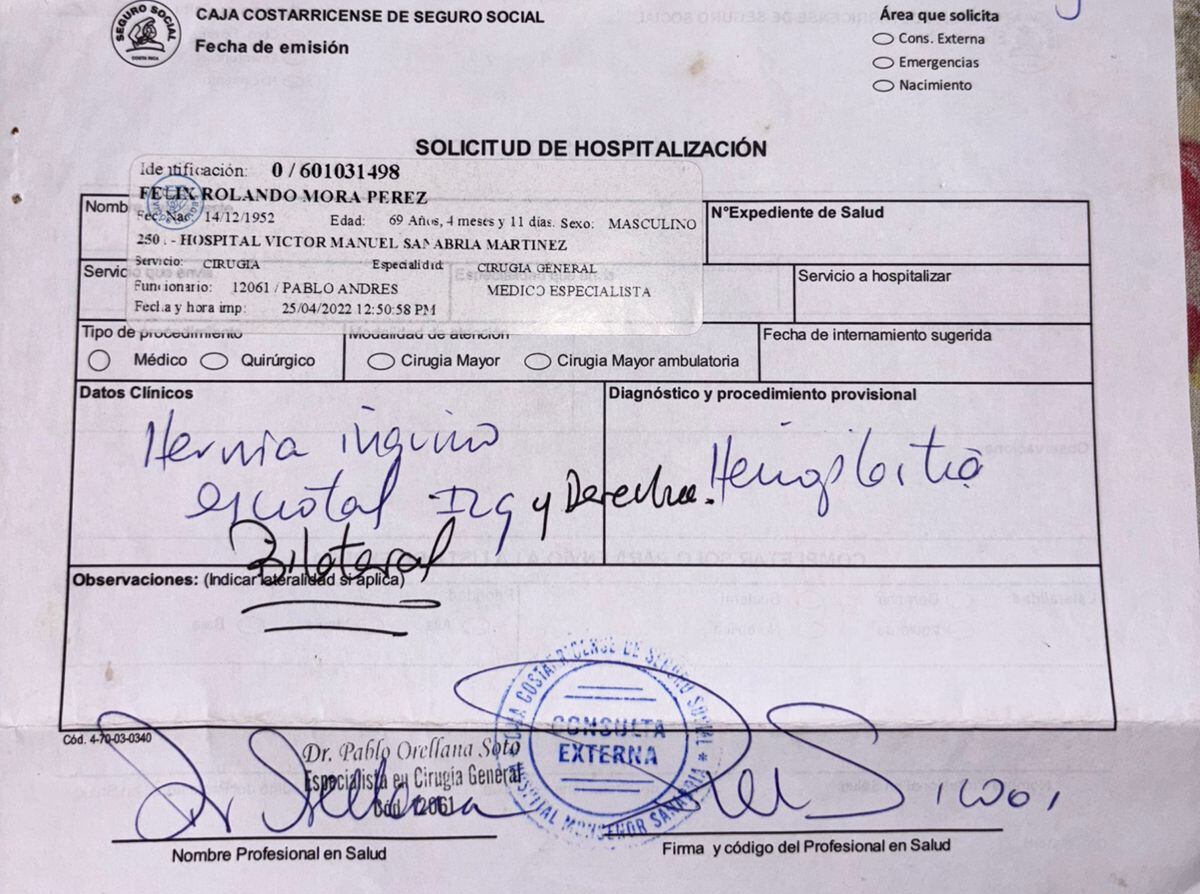 SEGURO SOCIAL
COSTA RICA
CAJA COSTARRICENSE DE SEGURO SOCIAL
Fecha de emisión
Área que solicita
Cons. Externa
Emergencias
Nacimiento
SOLICITUD DE HOSPITALIZACIÓN
Identificación: 0 / 601031498
FELIX ROLANDO MORA PEREZ
Nomb
Fec. Nac: 14/12/1952 Edad: 69 Años, 4 meses y 11 días. Sexo: MASCULINO
N°Expediente de Salud
250 . - HOSPITAL VICTOR MANUEL SANABRIA MARTINEZ
Servic
Servicio: CIRUGIA Especialidad: CIRUGIA GENERAL
Servicio a hospitalizar
Funcionario: 12061 / PABLO ANDRES MEDICO ESPECIALISTA
Fecha y hora imp: 25/04/2022 12:50:58 PM
Tipo de procedimiento
Modalidad de atención
Fecha de internamiento sugerida
Médico Quirúrgico
Cirugia Mayor Cirugia Mayor ambulatoria
Datos Clínicos
Diagnóstico y procedimiento provisional
Hernia inguino
escrotal Izq y Derecha.
Hernioplastia
Bilateral
Observaciones: (Indicar lateralidad si aplica)
Cód. 4-70-03-0340
Dr. Pablo Orellana Soto
Especialista en Cirugía General
Cód. 12061
CAJA COSTARRICENSE DE SEGURO SOCIAL
CONSULTA
EXTERNA
HOSPITAL MONSEÑOR SANABRIA
Nombre Profesional en Salud
Firma y código del Profesional en Salud